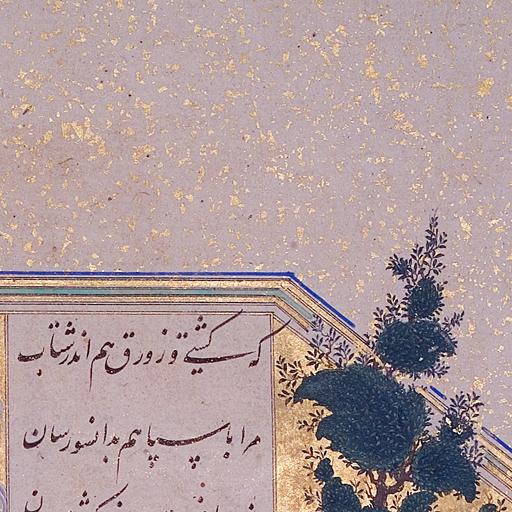 که کشتی و زورق هم اندر شتاب
مرا با سپاهم بدانسو رسان